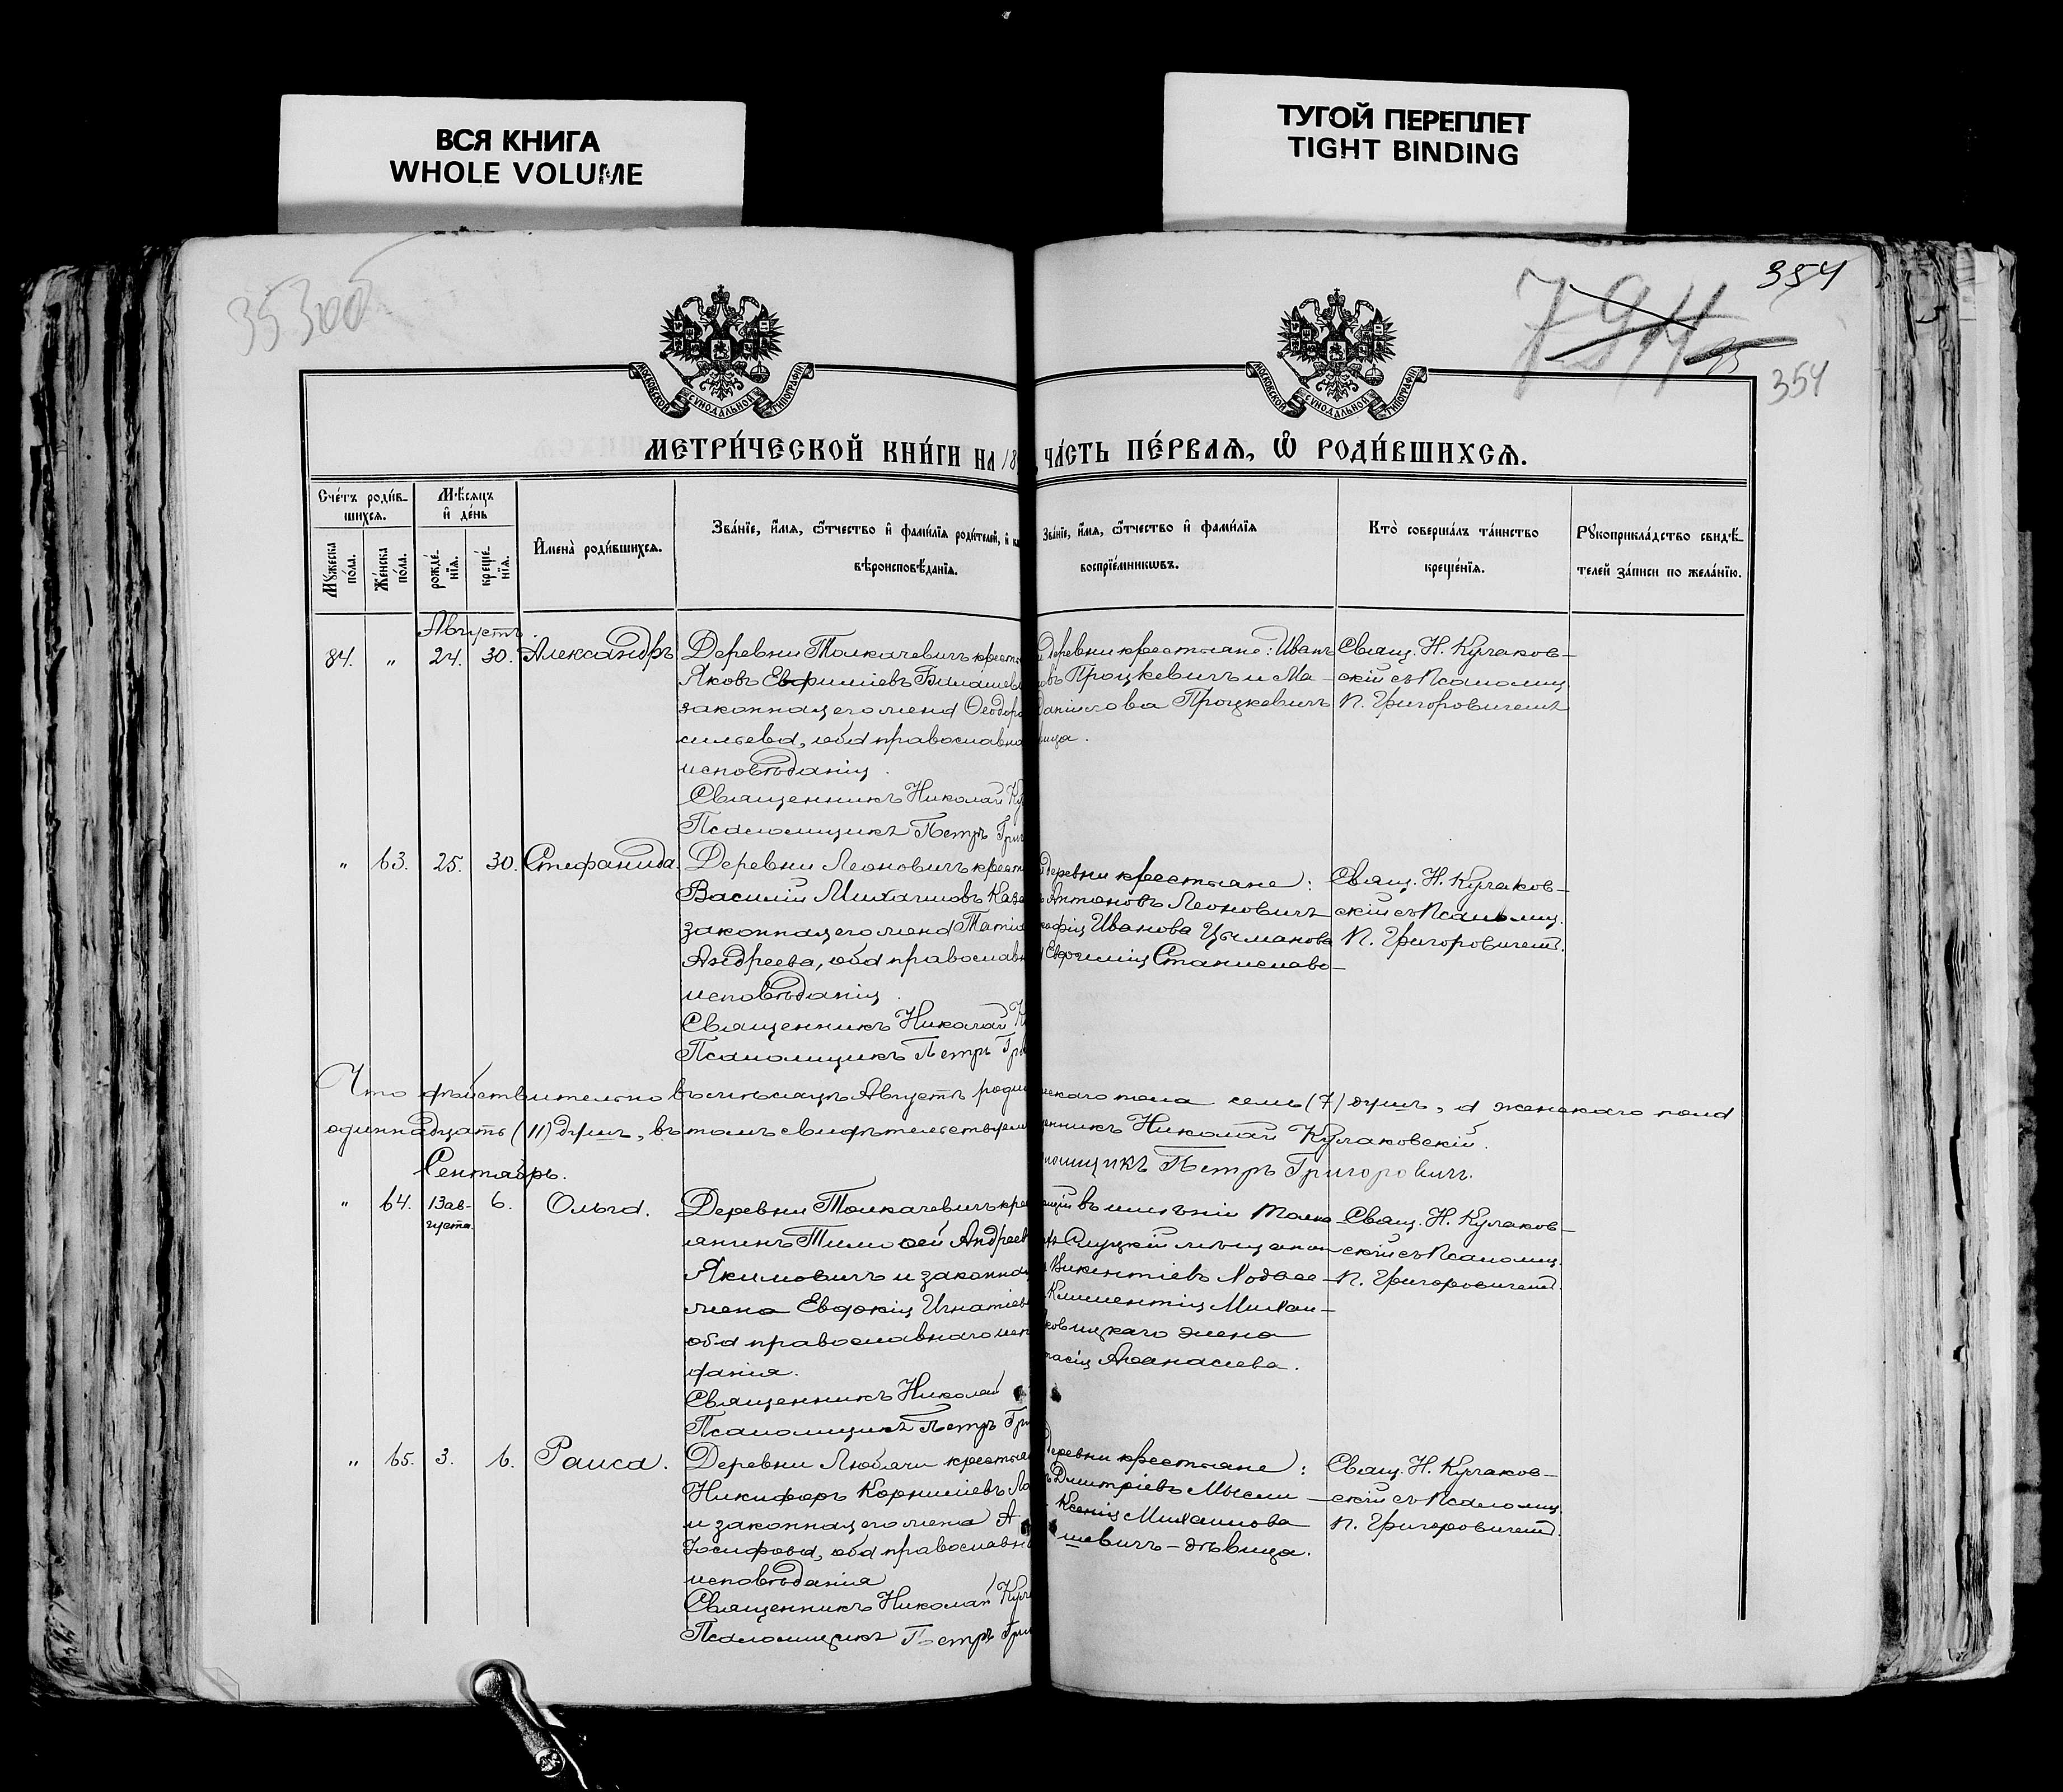 ВСЯ КНИГА
WHOLE VOLUME
ТУГОЙ ПЕРЕПЛЕТ
TIGHT BINDING
35300
354
354
МОСКОВСКОЙ СУНОДАЛЬНОЙ ТИПОГРАФІИ
МОСКОВСКОЙ СУНОДАЛЬНОЙ ТИПОГРАФІИ
МЕТРИ́ЧЕСКОЙ КНИ́ГИ НА 18
ЧА́СТЬ ПЕ́РВАѦ, Ѽ РОДИ́ВШИХСѦ.
Сче́тъ роди́в-
шихсѧ.
Мѣ́сѧцъ
и҆ де́нь
Мꙋ́жеска
по́ла.
Же́нска
по́ла.
рожде́-
нїѧ.
креще́-
нїѧ.
И҆мена̀ роди́вшихсѧ.
Зва́нїе, и҆́мѧ, ѻ҆́тчество и҆ фамѝлїѧ роди́телей, и҆
вѣроисповѣ́данїѧ.
Зва́нїе, и҆́мѧ, ѻ҆́тчество и҆ фами́лїѧ
воспрїе́мникѡвъ.
Кто̀ соверша́лъ та́инство
креще́нїѧ.
Рꙋкоприкла́дство свидѣ́-
телей за́писи по жела́нїю.
Августъ.
84. " 24. 30. Александръ
Деревни Толкачевичъ крест
Яковъ Евфиміевъ
законная его жена Ѳеодор
сильева, оба православна
исповѣданія.
Священникъ Николай Ку
Псаломщикъ Петръ Григ
деревни крестьяне: Иванъ
Процкевичъ и Ма-
Процкевичъ
вица.
Свящ. Н. Кулаков-
скій съ Псаломщ.
П. Григоровичемъ
" 63. 25. 30. Стефанида.
Деревни Леоновичъ крест
Василій Михаиловъ Каза
законная его жена Татіа
Андреева, оба православн
исповѣданія.
Священникъ Николай К
Псаломщикъ Петръ Гри
деревни крестьяне:
Антоновъ Леоновичъ
Иванова Цыманова
Станиславо-
Свящ. Н. Кулаков-
скій съ Псаломщ.
П. Григоровичемъ.
Что дѣйствительно въ мѣсяцѣ Августѣ роди
ескаго пола семь (7) душъ, а женскаго пола
одиннадцать (11) душъ, въ томъ свидѣтельствуем
енникъ Николай Кулаковскій.
омщикъ Петръ Григоровичъ.
Сентябрь.
" 64. 13 ав-
густа. 6. Ольга.
Деревни Толкачевичъ кре
янинъ Тимоѳей Андреев
Якимовичъ и законная
жена Евдокія Игнатіев
оба православнаго исп
данія.
Священникъ Николай
Псаломщикъ Петръ Гри
въ имѣніи Толка-
Слуцкій мѣщанин
Викентіевъ
Климентія Михаи-
ковицкаго жена
тасія Аѳанасіева.
Свящ. Н. Кулаков-
скій съ Псаломщ.
П. Григоровичемъ.
" 65. 3. 6. Раиса.
Деревни Любачи крестья
Никифоръ Корниліевъ
и законная его жена А
Іосифова, оба православн
исповѣданія
Священникъ Николай Кул
Псаломщикъ Петръ Гри
деревни крестьяне:
Дмитріевъ Мысли-
Ксенія Михаилова
шевичъ - дѣвица.
Свящ. Н. Кулаков-
скій съ Псаломщ.
П. Григоровичемъ.